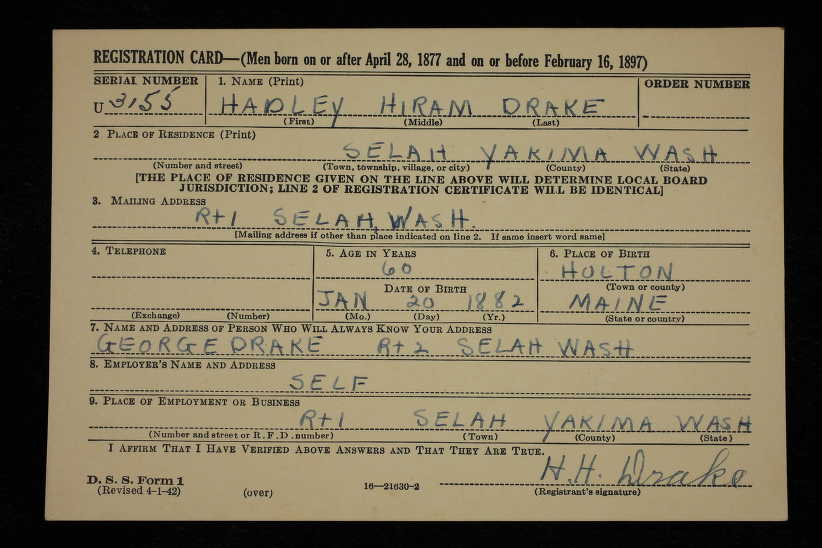 REGISTRATION CARD—(Men born on or after April 28, 1877 and on or before February 16, 1897)
SERIAL NUMBER 1. NAME (Print) ORDER NUMBER
U 3155 HADLEY HIRAM DRAKE
(First) (Middle) (Last)
2 PLACE OF RESIDENCE (Print)
SELAH YAKIMA WASH
(Number and street) (Town, township, village, or city) (County) (State)
[THE PLACE OF RESIDENCE GIVEN ON THE LINE ABOVE WILL DETERMINE LOCAL BOARD
JURISDICTION; LINE 2 OF REGISTRATION CERTIFICATE WILL BE IDENTICAL]
3. MAILING ADDRESS
Rt 1 SELAH, WASH.
[Mailing address if other than place indicated on line 2. If same insert word same]
4. TELEPHONE 5. AGE IN YEARS 6. PLACE OF BIRTH
60 HOLTON
DATE OF BIRTH (Town or county)
JAN 20 1882 MAINE
(Exchange) (Number) (Mo.) (Day) (Yr.) (State or country)
7. NAME AND ADDRESS OF PERSON WHO WILL ALWAYS KNOW YOUR ADDRESS
GEORGE DRAKE Rt 2 SELAH WASH
8. EMPLOYER'S NAME AND ADDRESS
SELF
9. PLACE OF EMPLOYMENT OR BUSINESS
Rt 1 SELAH YAKIMA WASH
(Number and street or R. F. D. number) (Town) (County) (State)
I AFFIRM THAT I HAVE VERIFIED ABOVE ANSWERS AND THAT THEY ARE TRUE.
H. H. Drake
D. S. S. Form 1
(Revised 4-1-42) (over) 16—21630-2 (Registrant's signature)